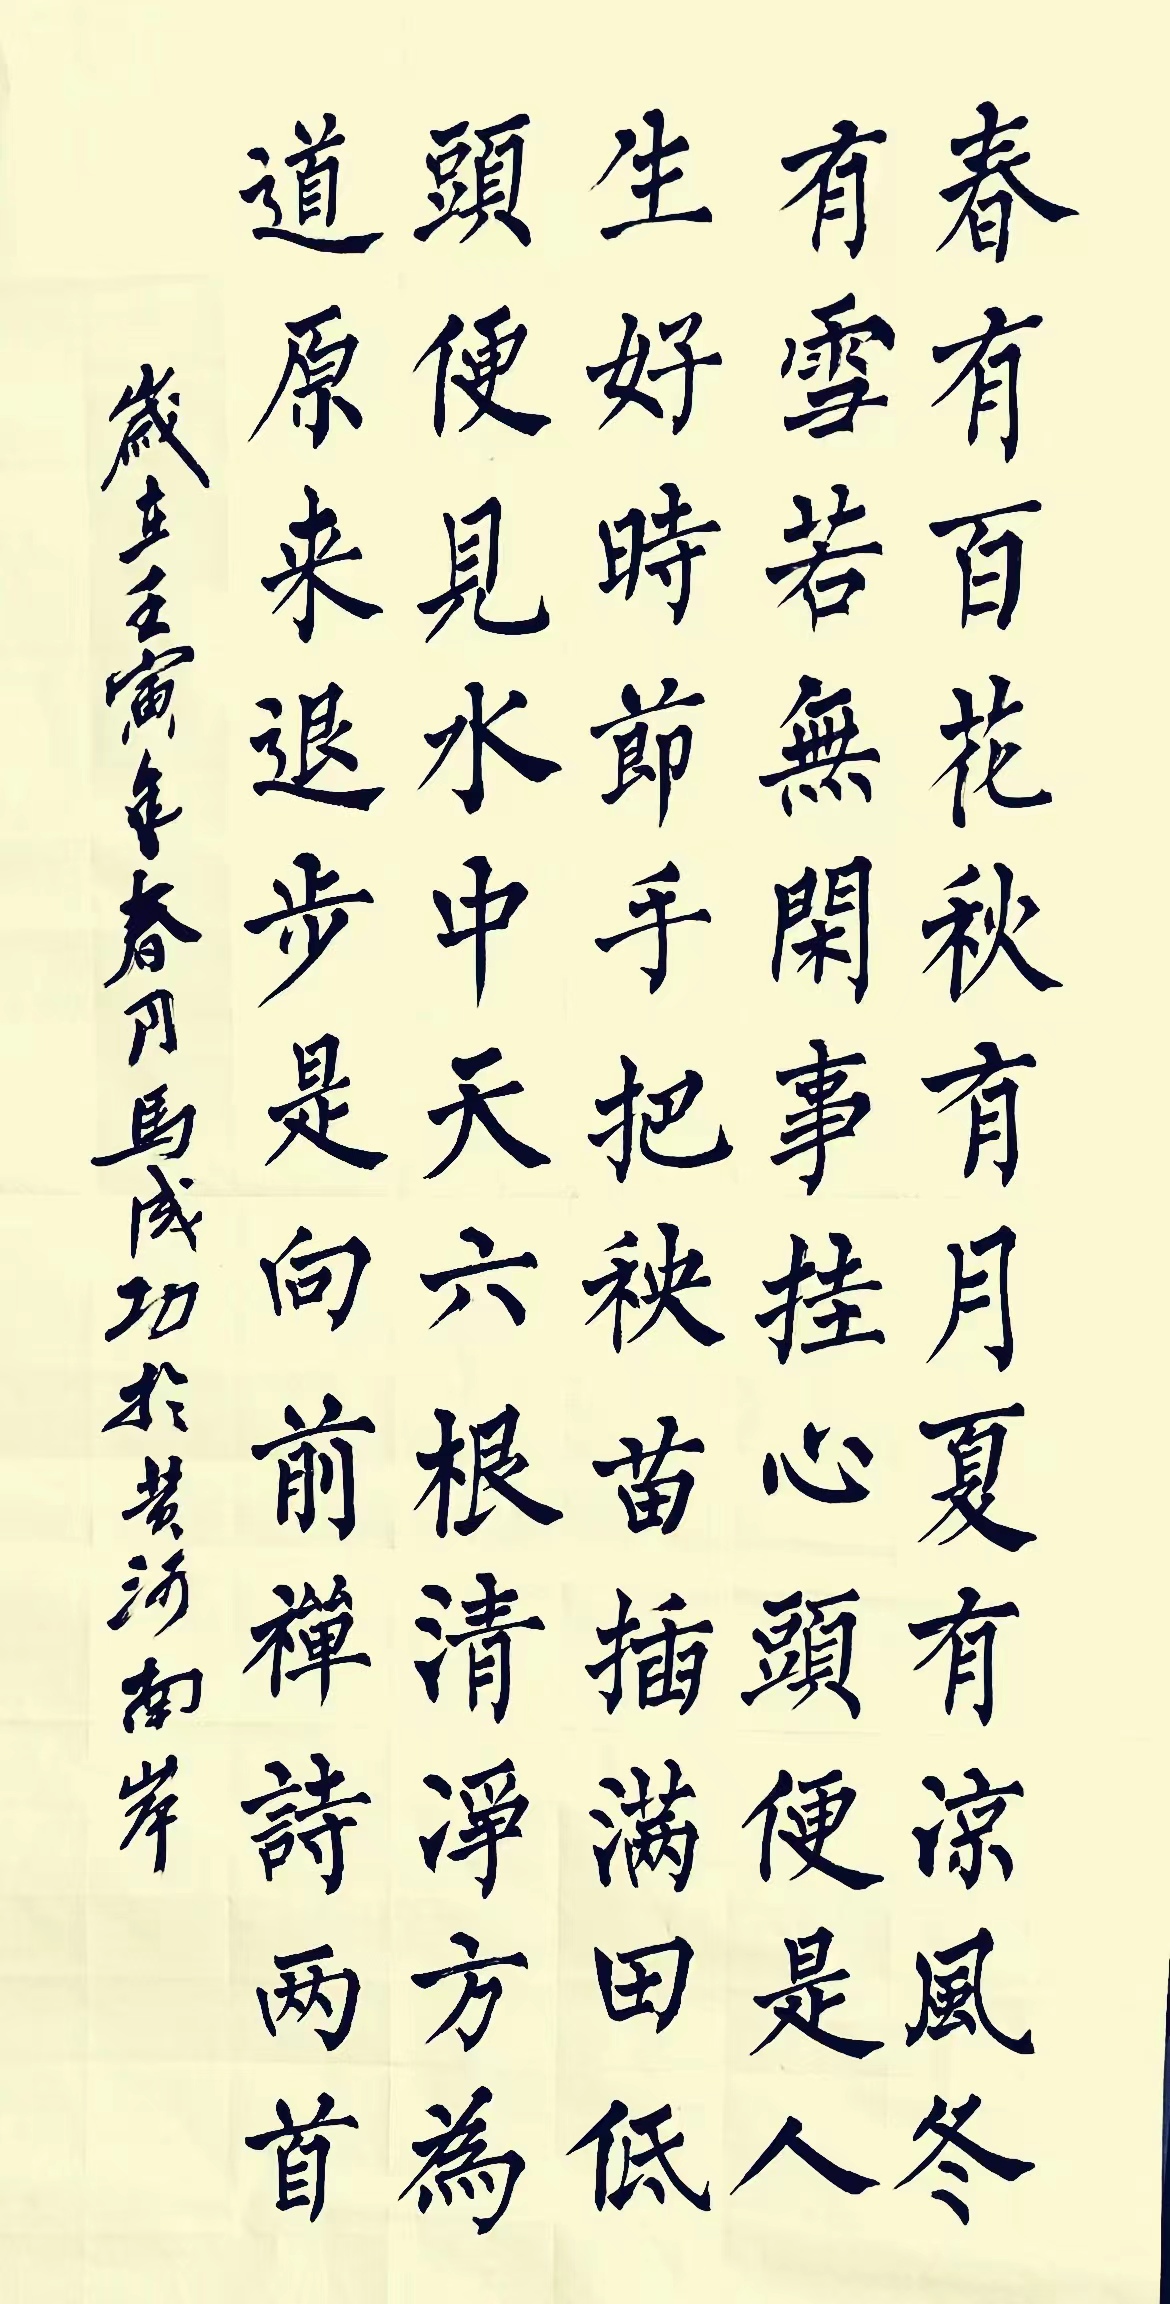 春有百花秋有月夏有凉風冬
有雪若無閑事挂心頭便是人
生好時節手把秧苗插满田低
頭便見水中天六根清净方為
道原来退步是向前禪詩两首
歲在壬寅年春月馬成功於黄河南岸